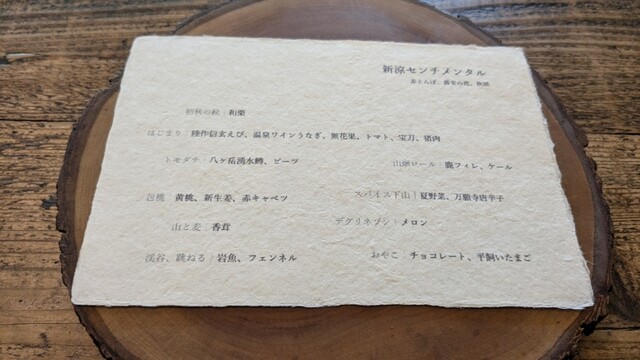 新涼センチメンタル
初秋の絵|和栗
はじまり|陸作信玄えび、温泉ワインうなぎ、無花果、トマト、宝刀、猪肉
トモダチ|八ヶ岳湧水鱒、ビーツ
山畑ロール|鹿フィレ、ケール
包桃|黄桃、新生姜、赤キャベツ
スパイス下山|夏野菜、万願寺唐辛子
山と麦|香茸
デグリネゾン|メロン
渓谷、跳ねる|岩魚、フェンネル
おやこ|チョコレート、平飼いたまご